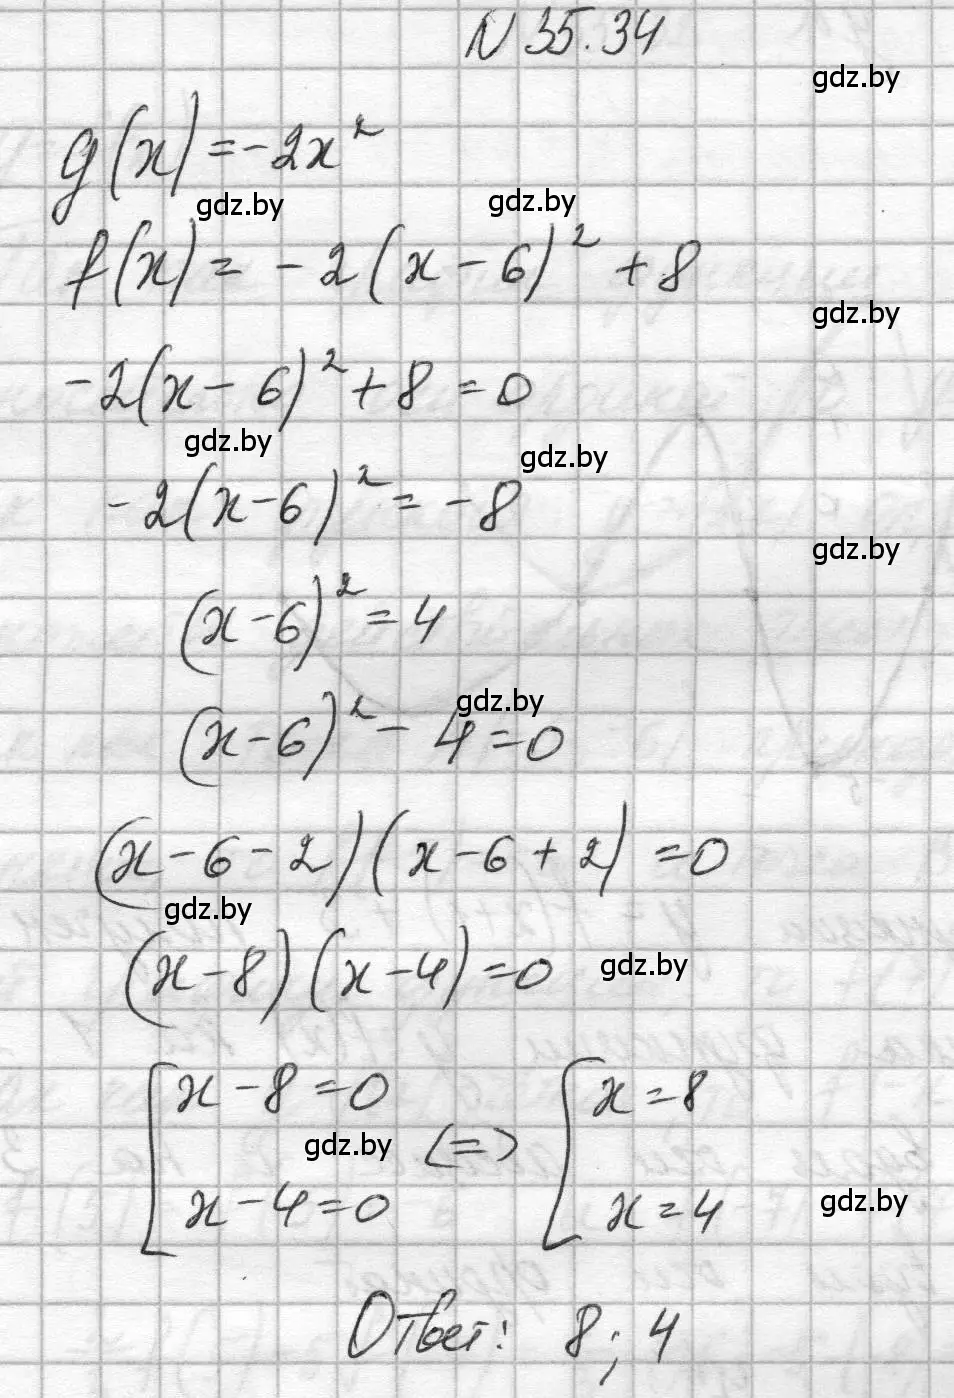 N 35.34
gdz.by
g(x) = -2x²
gdz.by gdz.by
f(x) = -2(x-6)² + 8
gdz.by
-2(x-6)² + 8 = 0
gdz.by gdz.by
-2(x-6)² = -8
gdz.by
(x-6)² = 4
gdz.by
(x-6)² - 4 = 0
(x-6-2)(x-6+2) = 0
gdz.by
(x-8)(x-4) = 0 gdz.by
[x-8=0 [x=8
gdz.by <=>
x-4=0 x=4 gdz.by
Ответ: 8; 4